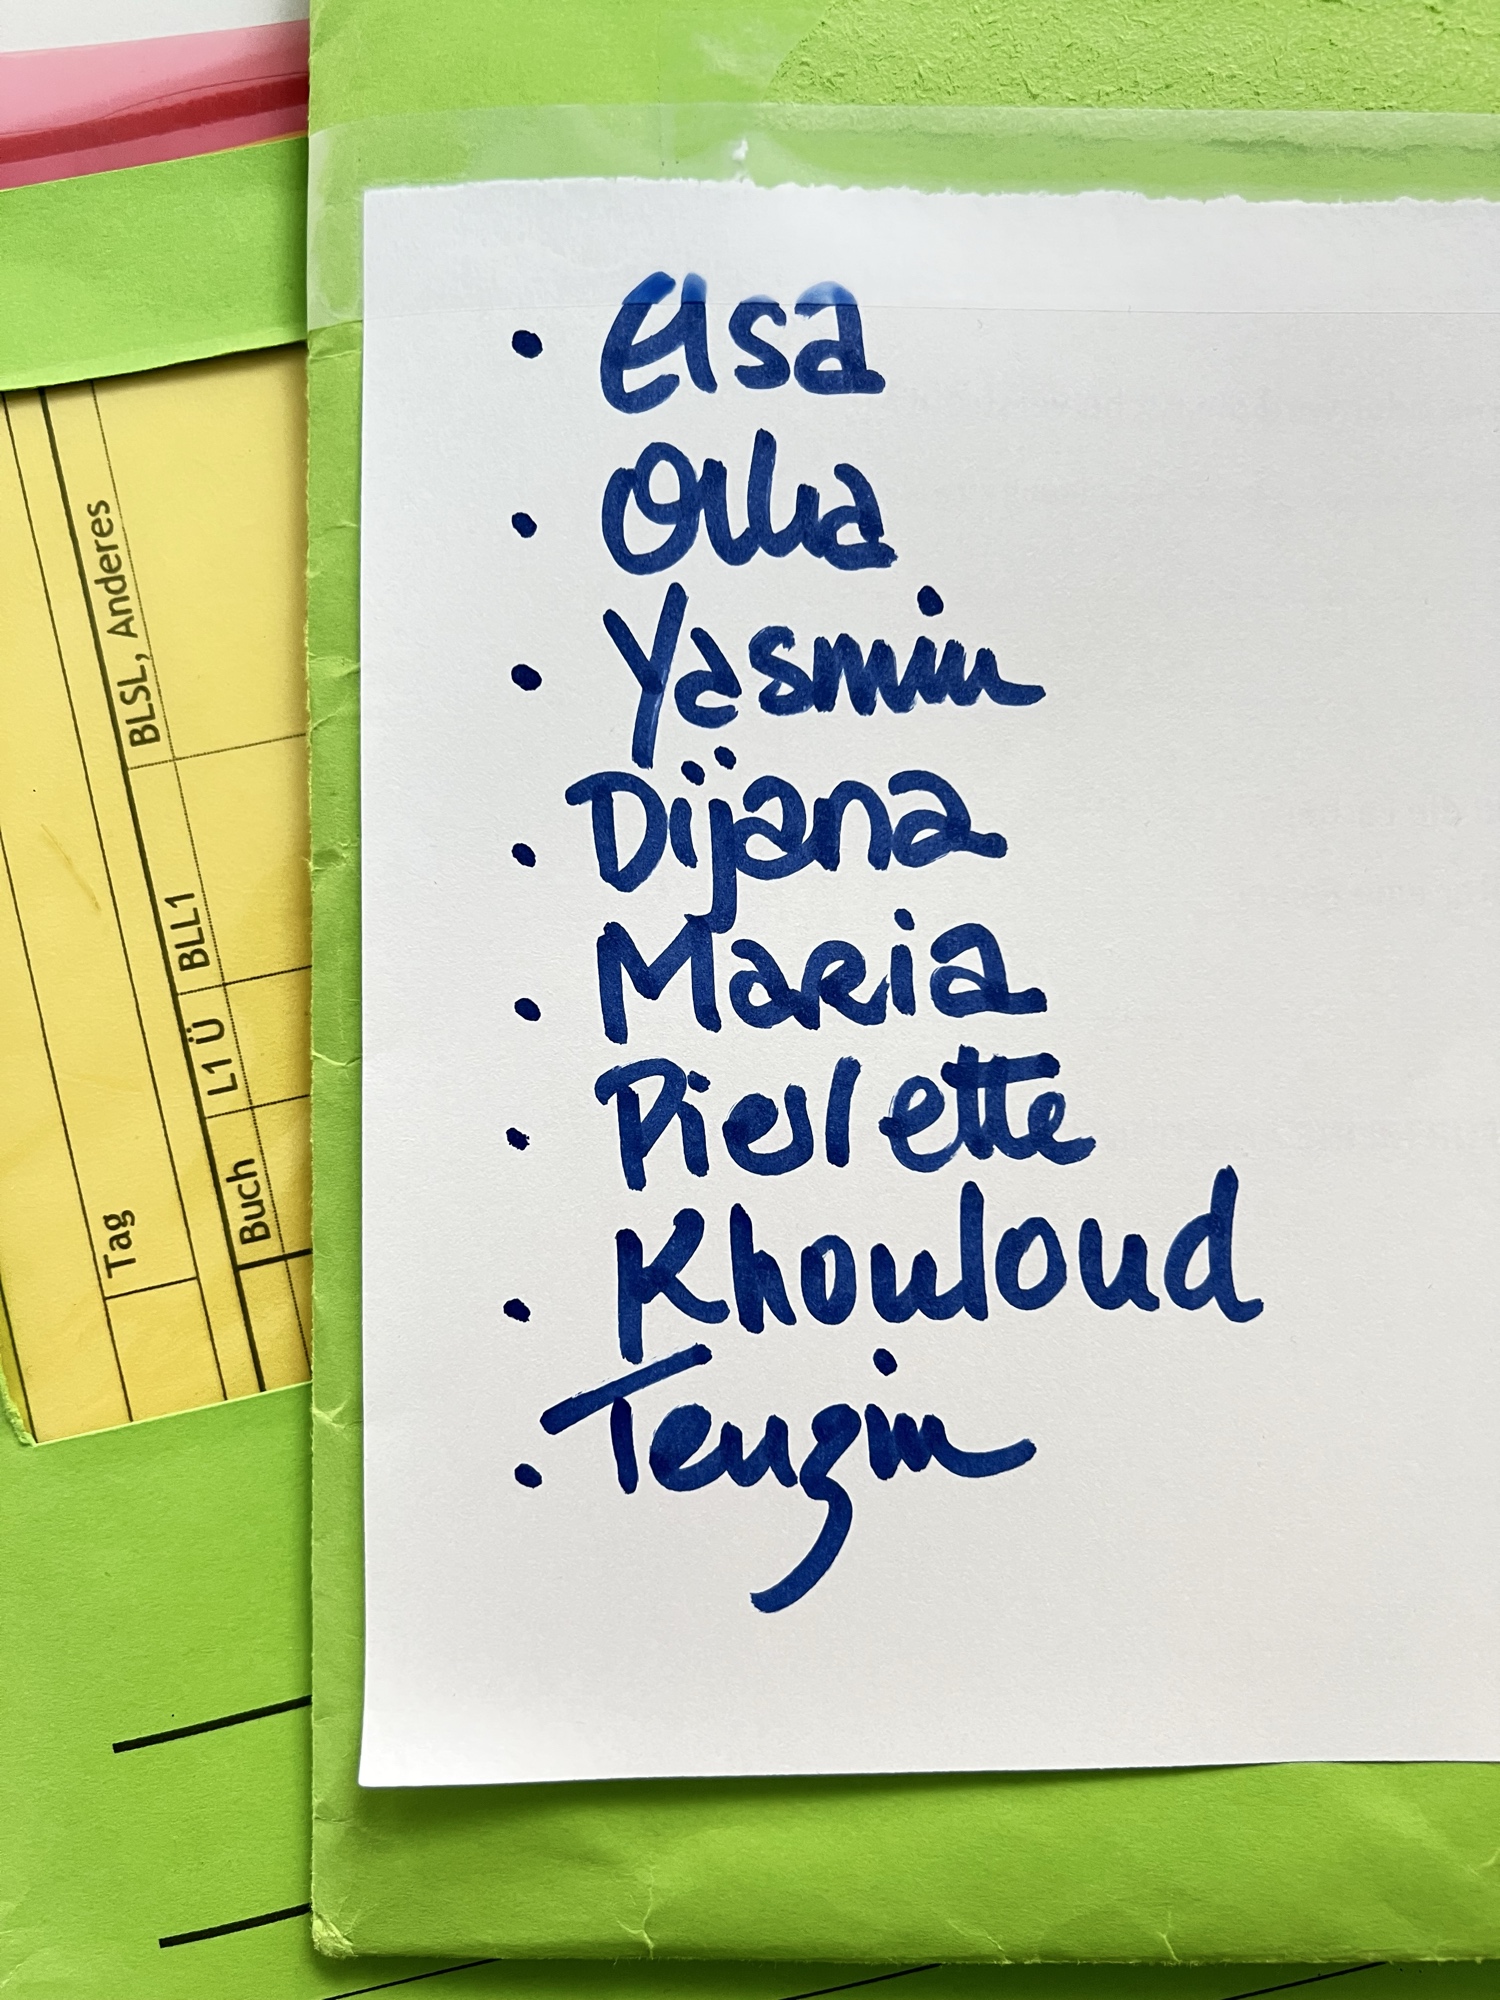 • Elsa
• Orka
• Yasmin
• Dijana
• Maria
• Pierlette
• Khouloud
• Tenzin
BLSL, Anderes
BLL1
L1 Ü
Buch
Tag